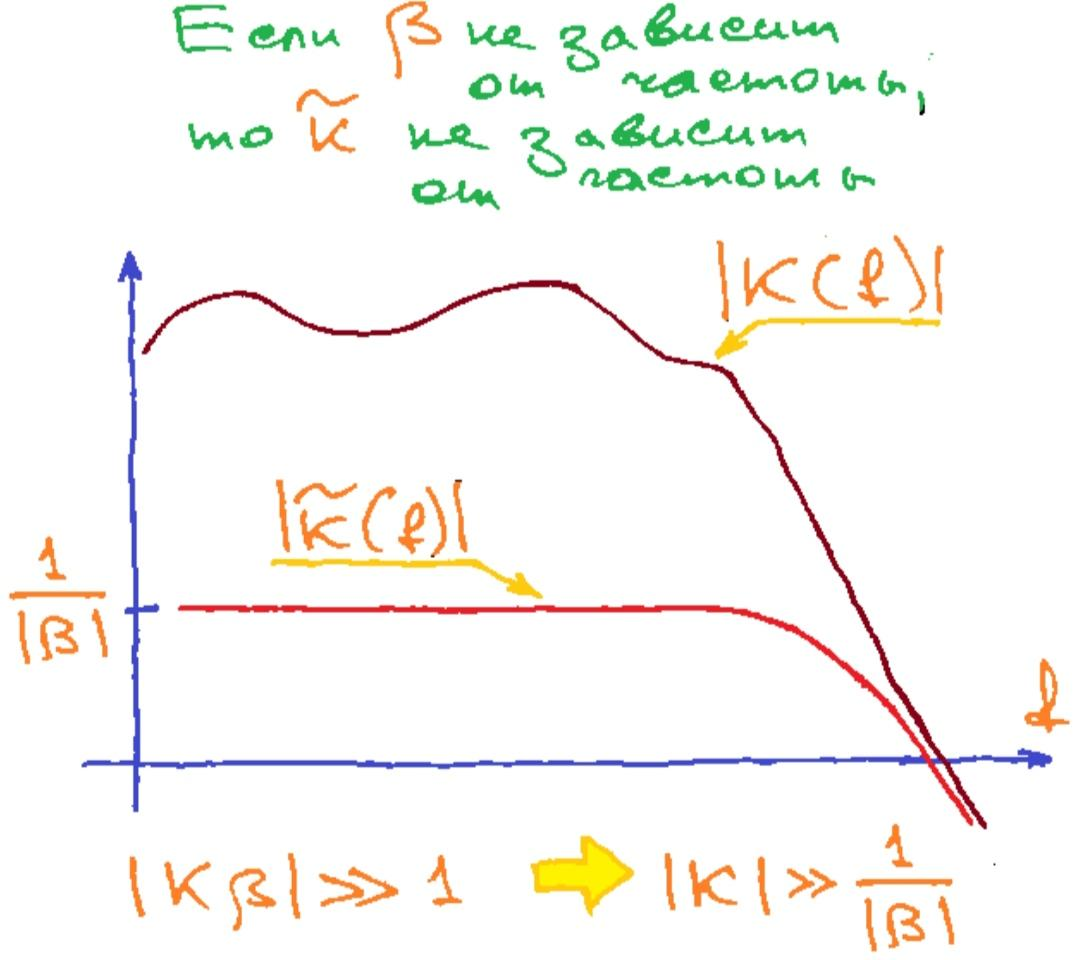 Если β не зависит
от частоты,
то K̃ не зависит
от частоты
|K(f)|
|K̃(f)|
1
|β|
f
|Kβ| >> 1 |K| >> 1
|β|